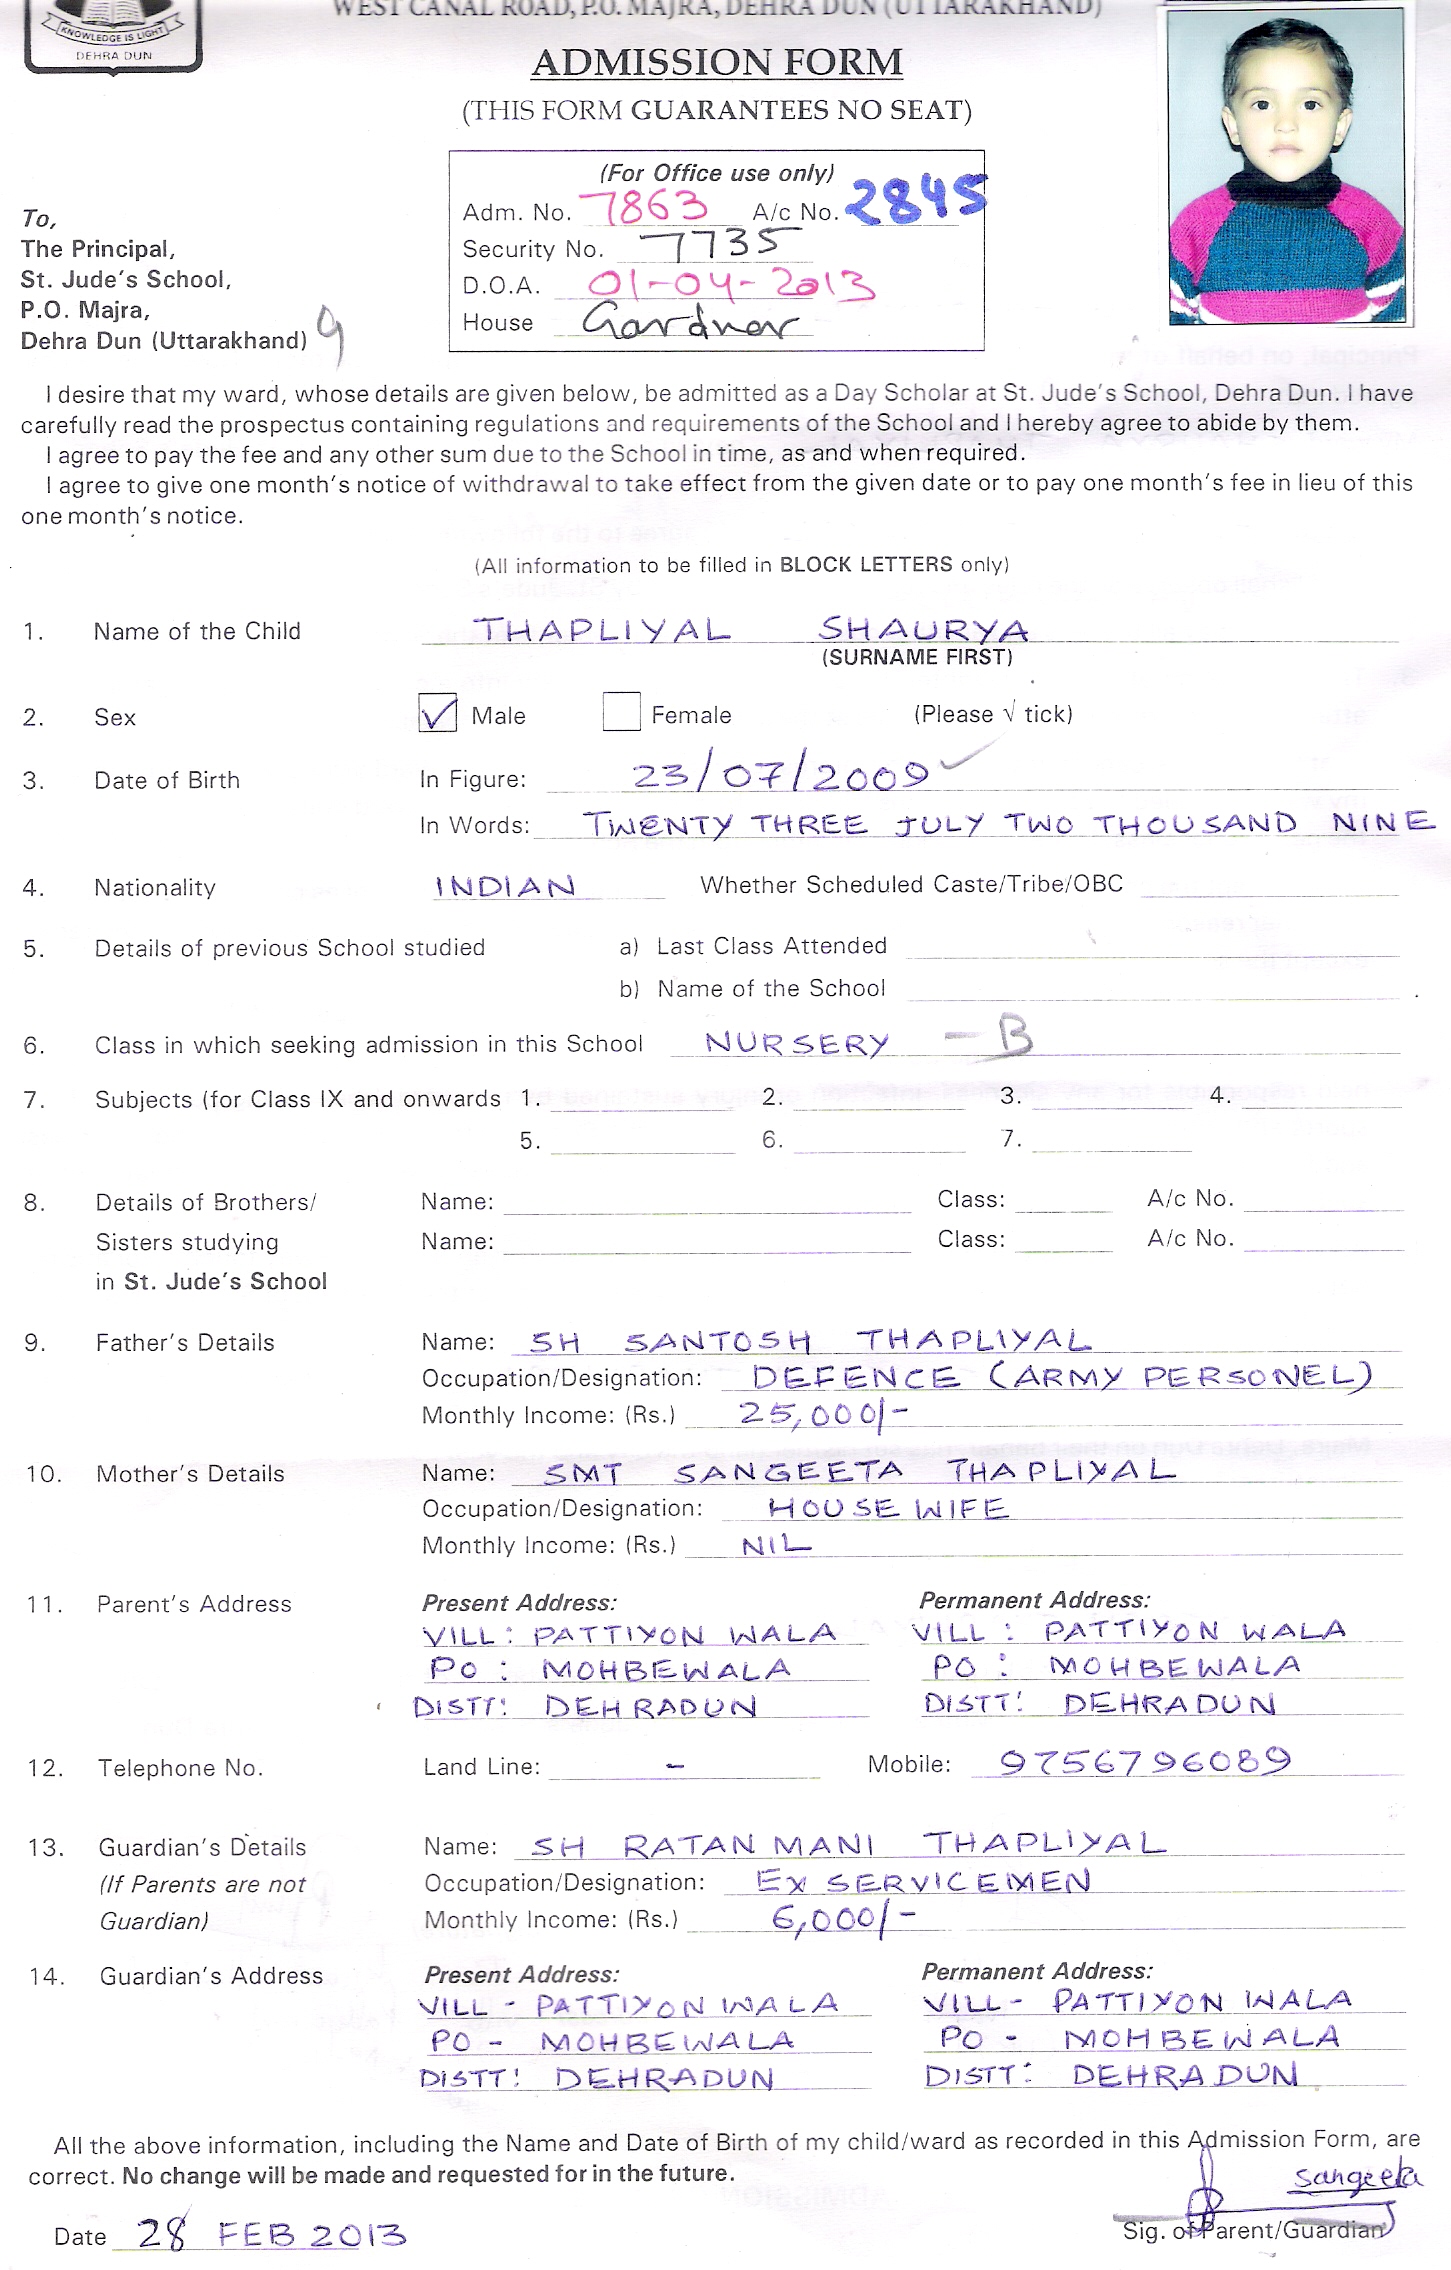 WEST CANAL ROAD, P.O. MAJRA, DEHRA DUN (UTTARAKHAND)
KNOWLEDGE IS LIGHT
DEHRA DUN
ADMISSION FORM
(THIS FORM GUARANTEES NO SEAT)
(For Office use only)
Adm. No. 7863 A/c No. 2845
Security No. 7735
D.O.A. 01-04-2013
House Gardner
To,
The Principal,
St. Jude's School,
P.O. Majra,
Dehra Dun (Uttarakhand)
I desire that my ward, whose details are given below, be admitted as a Day Scholar at St. Jude's School, Dehra Dun. I have
carefully read the prospectus containing regulations and requirements of the School and I hereby agree to abide by them.
I agree to pay the fee and any other sum due to the School in time, as and when required.
I agree to give one month's notice of withdrawal to take effect from the given date or to pay one month's fee in lieu of this
one month's notice.
(All information to be filled in BLOCK LETTERS only)
1. Name of the Child THAPLIYAL SHAURYA
(SURNAME FIRST)
2. Sex ✓ Male Female (Please √ tick)
3. Date of Birth In Figure: 23/07/2009
In Words: TWENTY THREE JULY TWO THOUSAND NINE
4. Nationality INDIAN Whether Scheduled Caste/Tribe/OBC
5. Details of previous School studied a) Last Class Attended
b) Name of the School
6. Class in which seeking admission in this School NURSERY - B
7. Subjects (for Class IX and onwards 1. 2. 3. 4.
5. 6. 7.
8. Details of Brothers/ Name: Class: A/c No.
Sisters studying Name: Class: A/c No.
in St. Jude's School
9. Father's Details Name: SH SANTOSH THAPLIYAL
Occupation/Designation: DEFENCE (ARMY PERSONEL)
Monthly Income: (Rs.) 25,000/-
10. Mother's Details Name: SMT SANGEETA THAPLIYAL
Occupation/Designation: HOUSE WIFE
Monthly Income: (Rs.) NIL
11. Parent's Address Present Address: Permanent Address:
VILL : PATTIYON WALA VILL : PATTIYON WALA
PO : MOHBEWALA PO : MOHBEWALA
DISTT: DEHRADUN DISTT: DEHRADUN
12. Telephone No. Land Line: - Mobile: 9756796089
13. Guardian's Details Name: SH RATAN MANI THAPLIYAL
(If Parents are not Occupation/Designation: EX SERVICEMEN
Guardian) Monthly Income: (Rs.) 6,000/-
14. Guardian's Address Present Address: Permanent Address:
VILL - PATTIYON WALA VILL - PATTIYON WALA
PO - MOHBEWALA PO - MOHBEWALA
DISTT: DEHRADUN DISTT: DEHRADUN
All the above information, including the Name and Date of Birth of my child/ward as recorded in this Admission Form, are
correct. No change will be made and requested for in the future.
Sangeeta
Date 28 FEB 2013 Sig. of Parent/Guardian